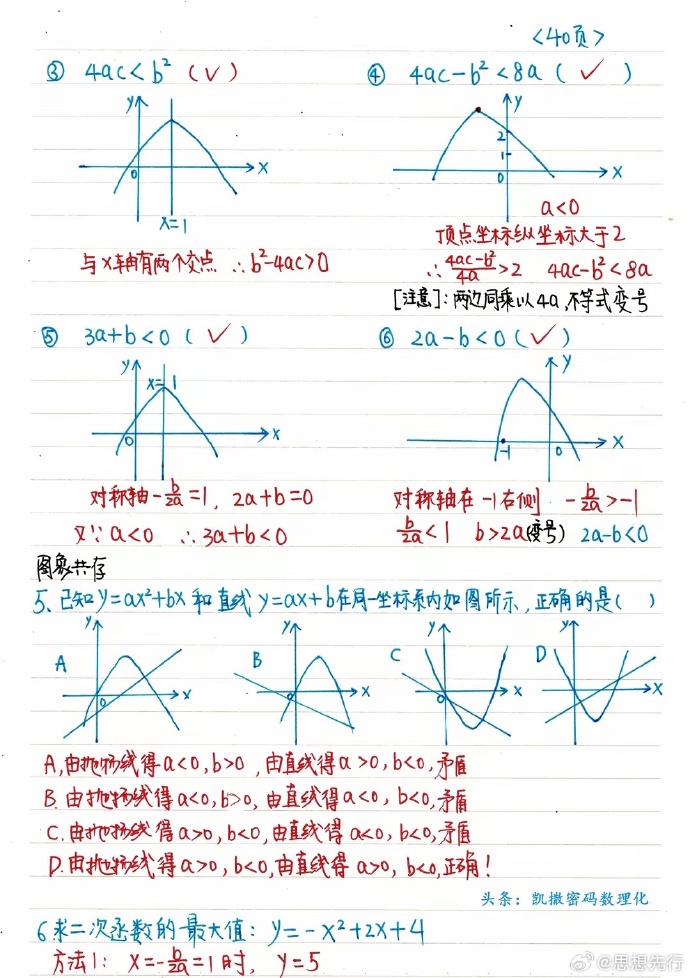 <40页>
③ 4ac<b² (✓)
④ 4ac-b²<8a (✓)
y
0
x
x=1
y
2
1
0
x
与x轴有两个交点 ∴b²-4ac>0
a<0
顶点坐标纵坐标大于2
∴ (4ac-b²)/4a>2 4ac-b²<8a
[注意]:两边同乘以4a,不等式变号
⑤ 3a+b<0 (✓)
⑥ 2a-b<0 (✓)
y
x=1
0
x
y
-1
0
x
对称轴-b/2a=1, 2a+b=0
又∵a<0 ∴3a+b<0
对称轴在-1右侧 -b/2a>-1
b/2a<1 b>2a(变号) 2a-b<0
图象共存
5、已知y=ax²+bx和直线y=ax+b在同一坐标系内如图所示,正确的是( )
A
y
0
x
B
y
0
x
C
y
0
x
D
y
x
A,由抛物线得a<0,b>0,由直线得a>0,b<0,矛盾
B.由抛物线得a<0,b>0,由直线得a<0,b<0,矛盾
C.由抛物线得a>0,b<0,由直线得a<0,b<0,矛盾
D.由抛物线得a>0,b<0,由直线得a>0,b<0,正确!
头条:凯撒密码数理化
6求二次函数的最大值:y=-x²+2x+4
方法1: x=-b/2a=1时, y=5
@思想先行